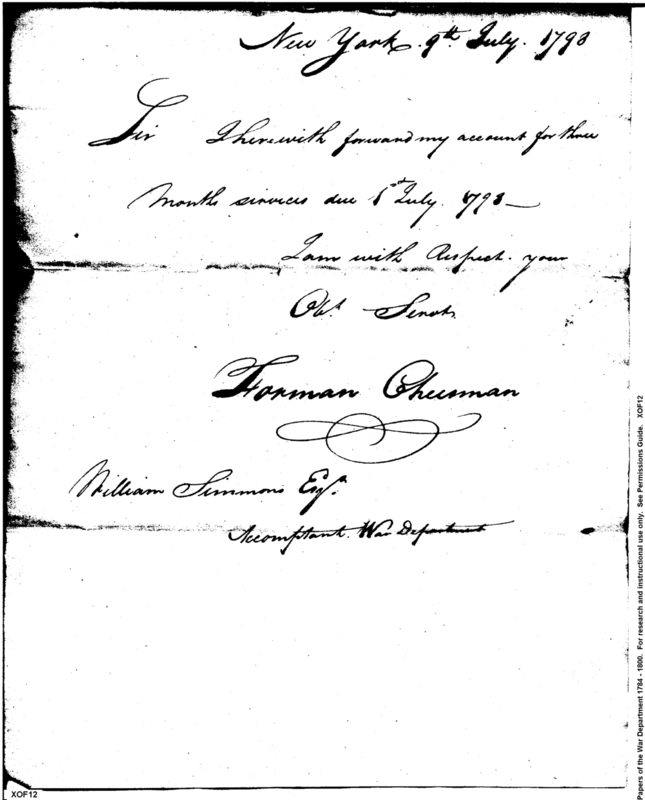 New York 9th July. 1798
Sir I herewith forward my account for three
Months services due 1st July 1798—
I am with Respect. your
Obt. Servt.
Forman Cheesman
William Simmons Esqr.
Accomptant War Department
Papers of the War Department 1784 - 1800. For research and instructional use only. See Permissions Guide. XOF12
XOF12